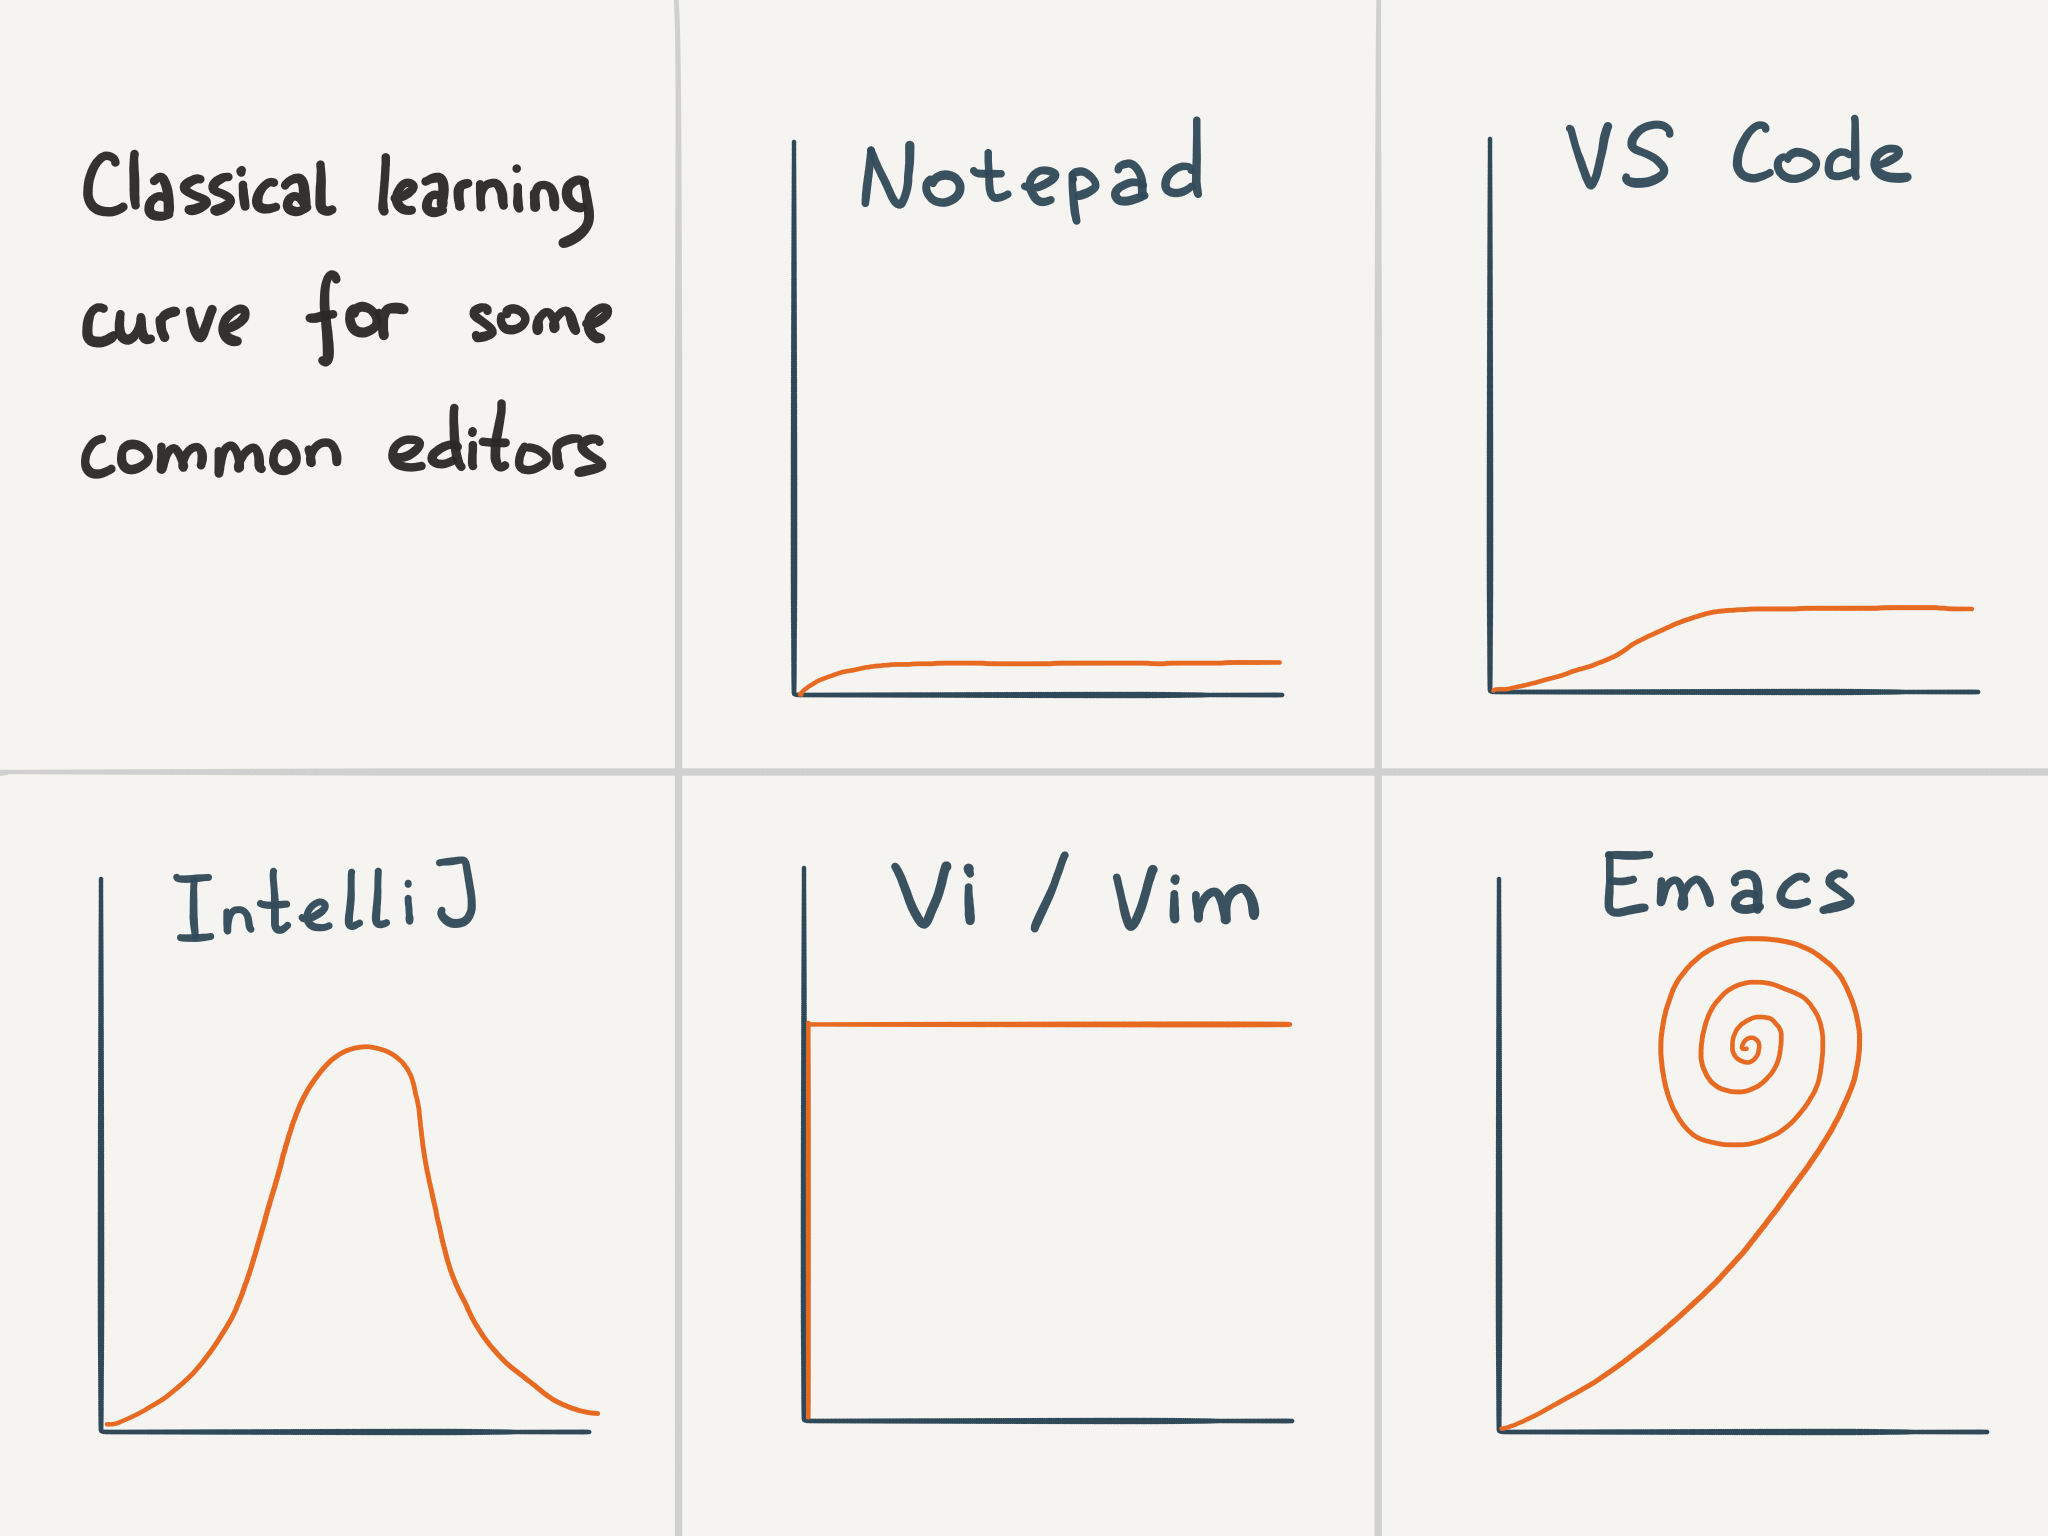 Classical learning
curve for some
common editors
Notepad
VS Code
IntelliJ
Vi / Vim
Emacs